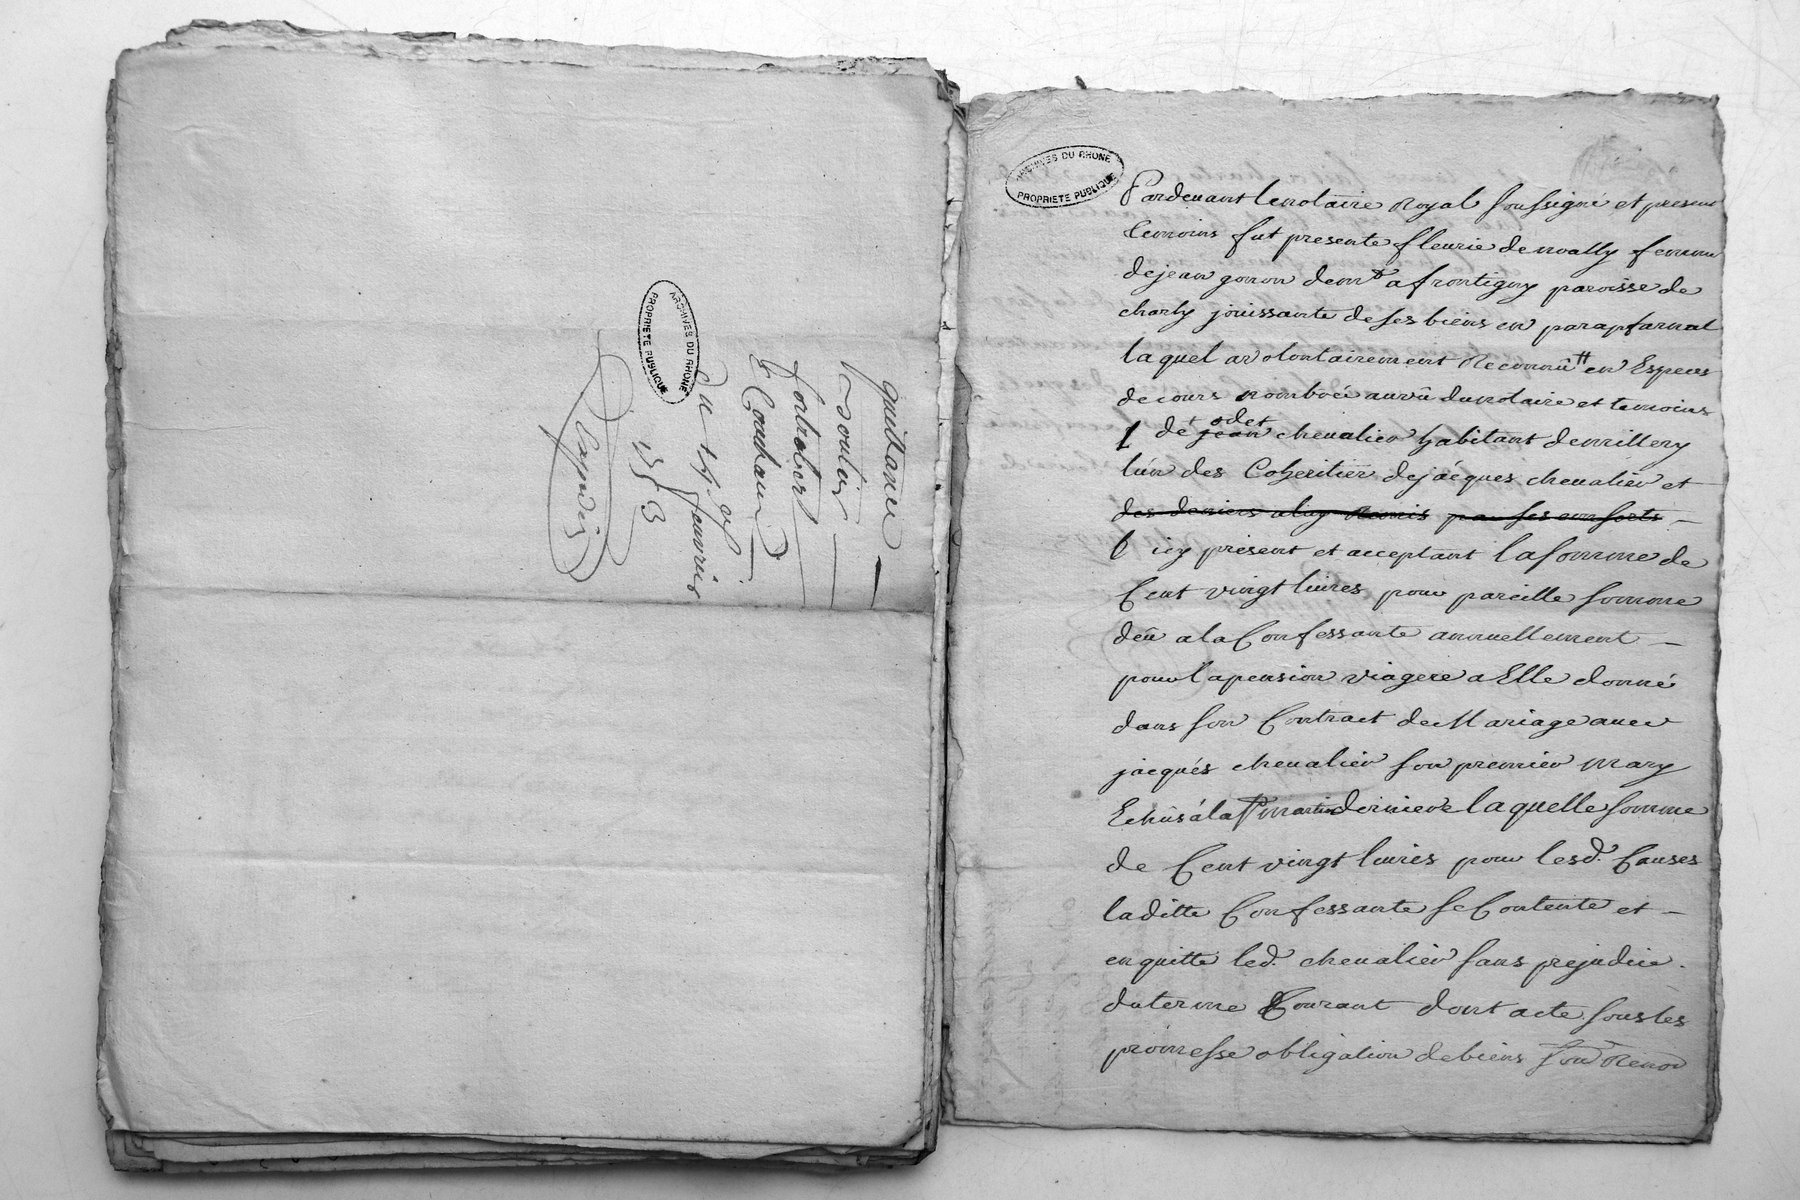 quittance
fontrobert
Cochau
du 14 janvier
1753
ARCHIVES DU RHONE
PROPRIETE PUBLIQUE
ARCHIVES DU RHONE
PROPRIETE PUBLIQUE
Pardevant le notaire Royal soussigné et presens
temoins fut presente fleurie denoally femme
de jean gonon demt a frontigny paroisse de
charly jouissante de ses biens en parapfarnal
laquel a volontairement Reconnû en Especes
de cours nombrée au vû du notaire et temoins
odet
de jean chevalier habitant de millery
lun des Coheritier de jacques chevalier et
des deniers a luy Remis par ses consorts
icy present et acceptant la somme de
Cent vingt livres pour pareille somme
deû a la Confessante annuellement
pour la pension viagere a Elle donné
dans son Contract de Mariage avec
jacqués chevalier son premier mary
Echüs á la St martin derniere laquelle somme
de Cent vingt livres pour lesd. Causes
laditte Confessante se Contente et
en quitte led. chevalier sans prejudice
du terme Courant dont acte sous les
promesse obligation de biens